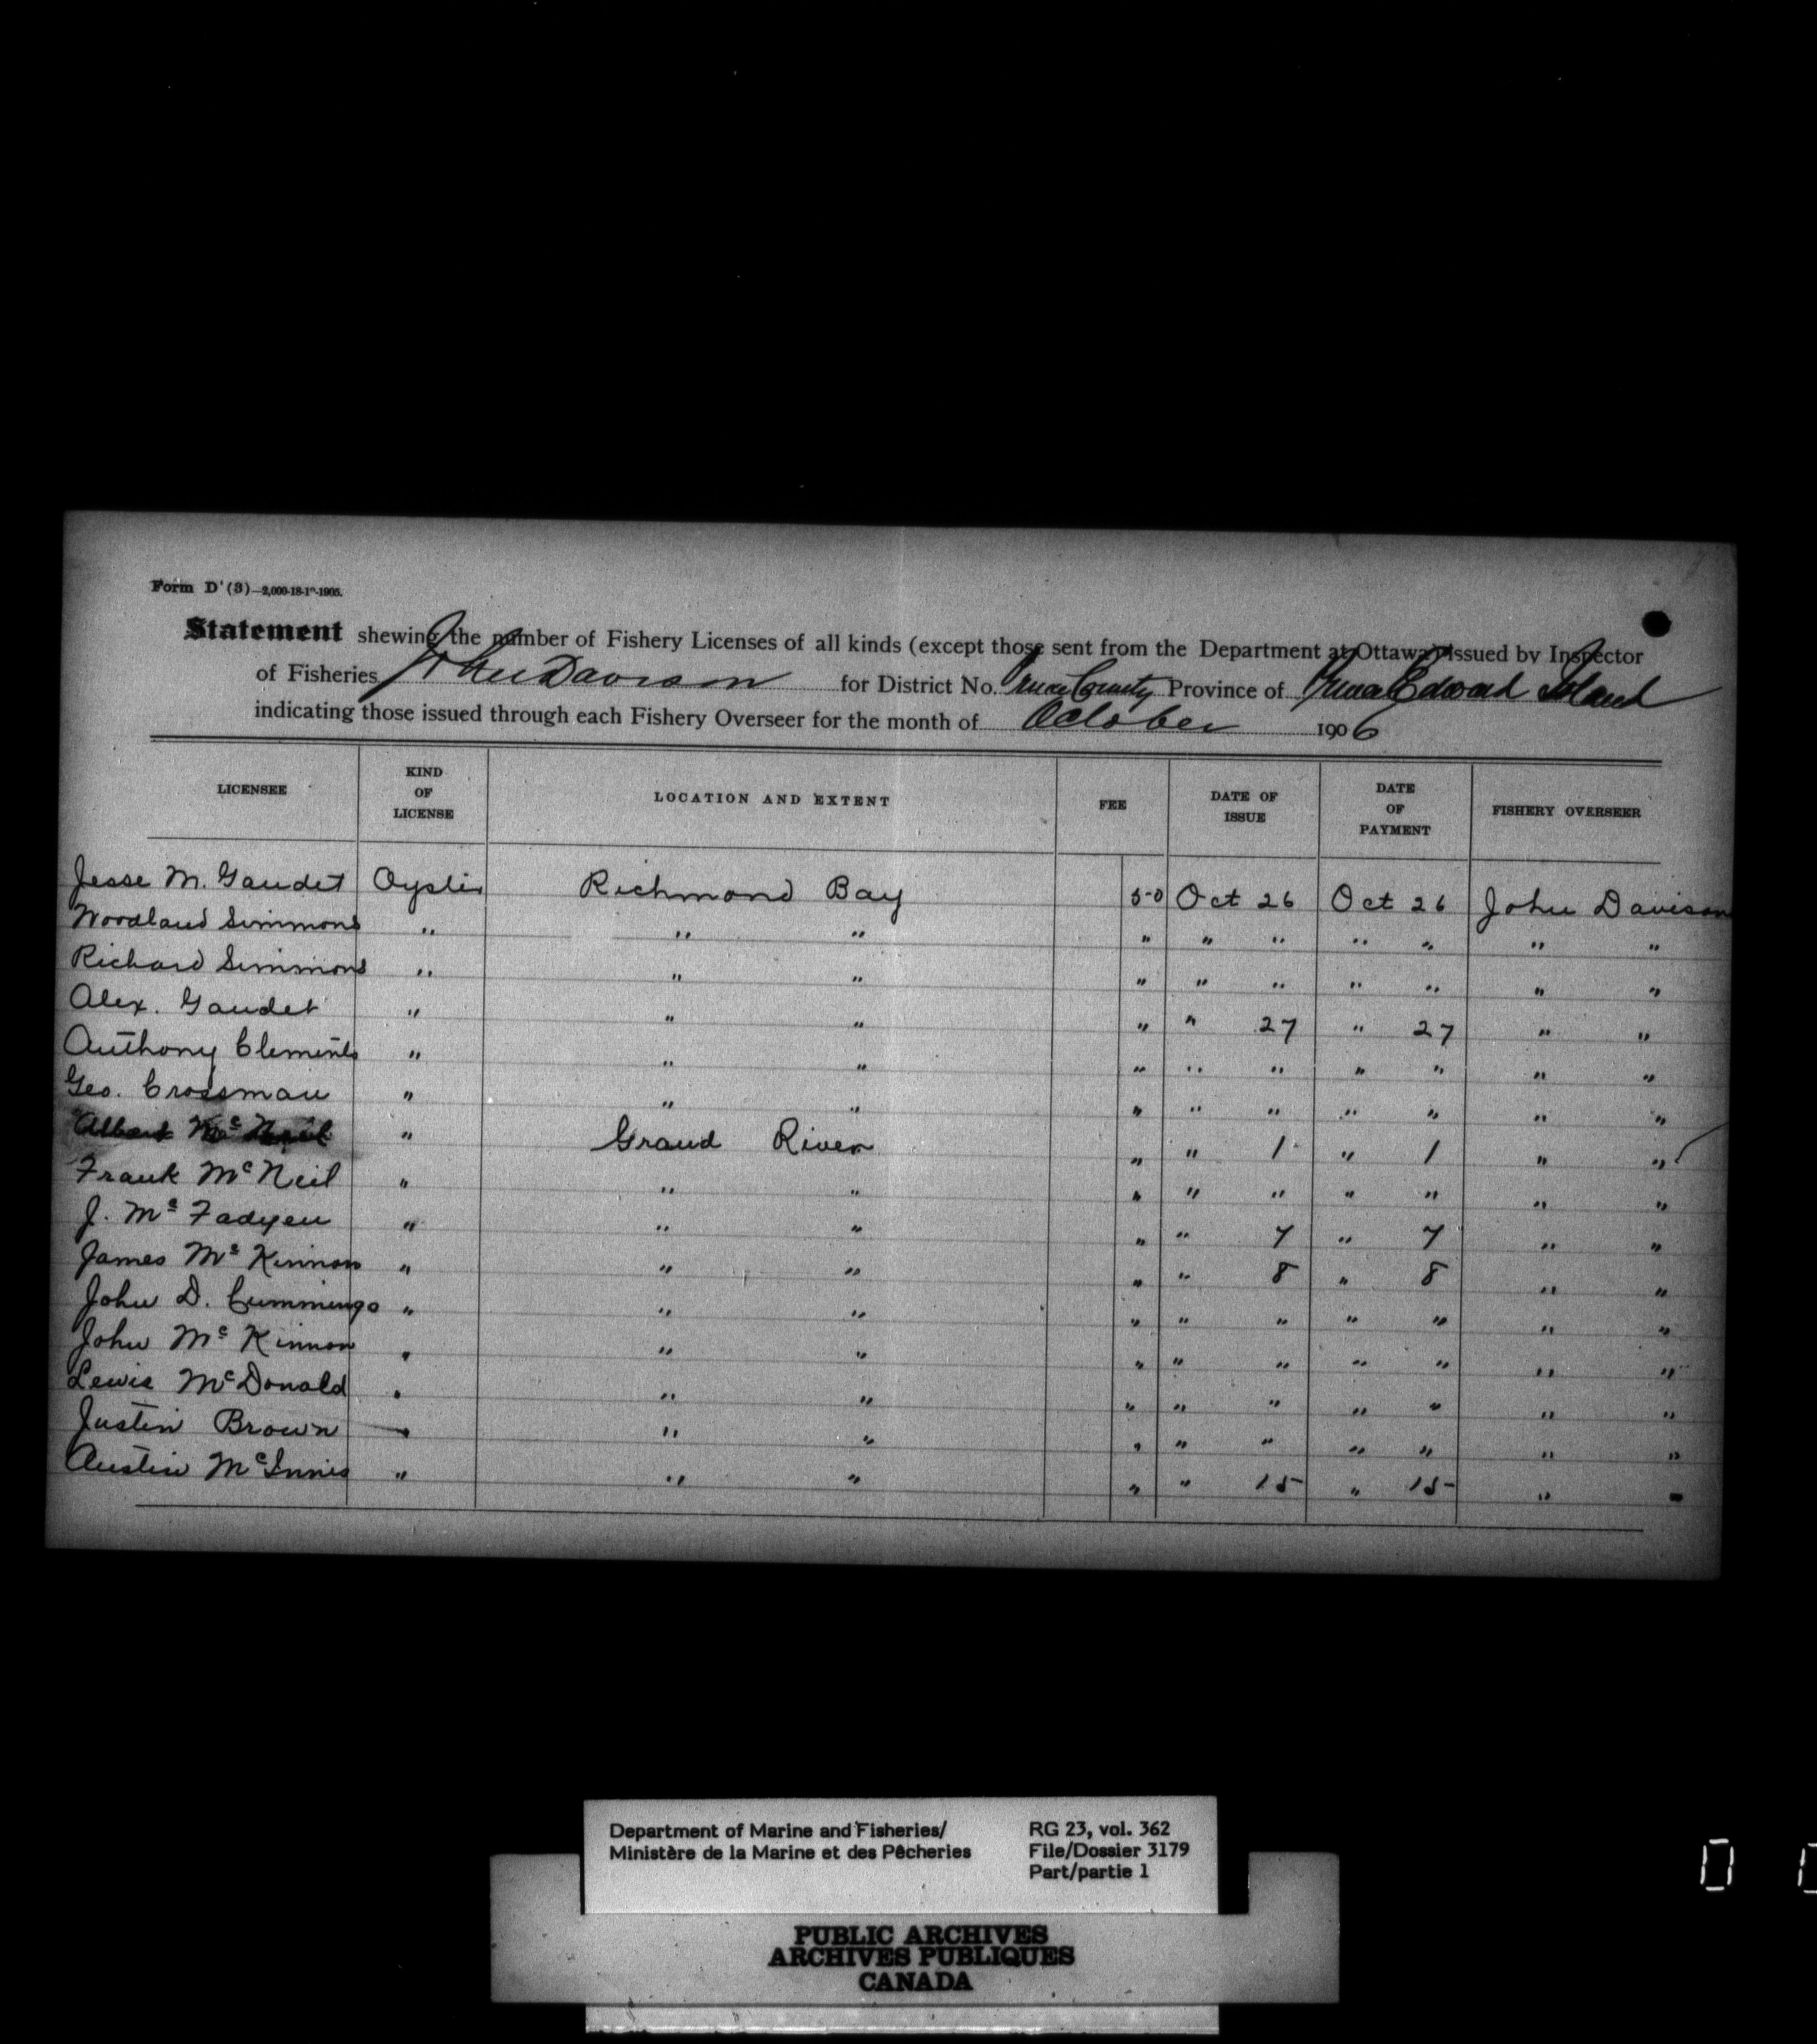 Form D'(3)—2,000-18-1"-1905.
Statement shewing the number of Fishery Licenses of all kinds (except those sent from the Department at Ottawa) issued by Inspector
of Fisheries John Davison for District No. Prince County Province of Prince Edward Island
indicating those issued through each Fishery Overseer for the month of October 1906
LICENSEE KIND OF LICENSE LOCATION AND EXTENT FEE DATE OF ISSUE DATE OF PAYMENT FISHERY OVERSEER
Jesse M. Gaudet Oyster Richmond Bay 50 Oct 26 Oct 26 John Davison
Woodland Simmons " " " " " " " " " "
Richard Simmons " " " " " " " " " "
Alex. Gaudet " " " " " 27 " 27 " "
Anthony Clements " " " " " " " " " "
Geo. Crossman " " " " " " " " " "
Albert Mc Neil " Grand River " " 1 " 1 " "
Frank McNeil " " " " " " " " " "
J. Mc Fadyen " " " " " 7 " 7 " "
James Mc Kinnon " " " " " 8 " 8 " "
John D. Cummings " " " " " " " " " "
John Mc Kinnon " " " " " " " " " "
Lewis McDonald " " " " " " " " " "
Justin Brown " " " " " " " " " "
Austin McInnis " " " " " 15 " 15 " "
Department of Marine and Fisheries/ RG 23, vol. 362
Ministère de la Marine et des Pêcheries File/Dossier 3179
Part/partie 1
PUBLIC ARCHIVES
ARCHIVES PUBLIQUES
CANADA